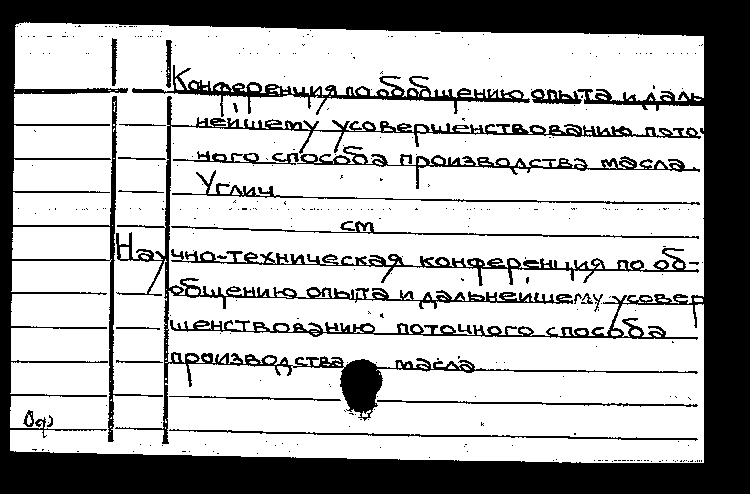 Конференция по обобщению опыта и даль
нейшему усовершенствованию поточ
ного способа производства масла.
Углич
см
Научно-техническая конференция по об-
общению опыта и дальнейшему усовер
шенствованию поточного способа
производства масла